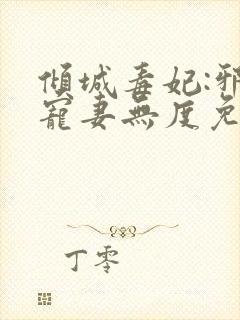 傾城毒妃:邪
寵妻無度免
丁零